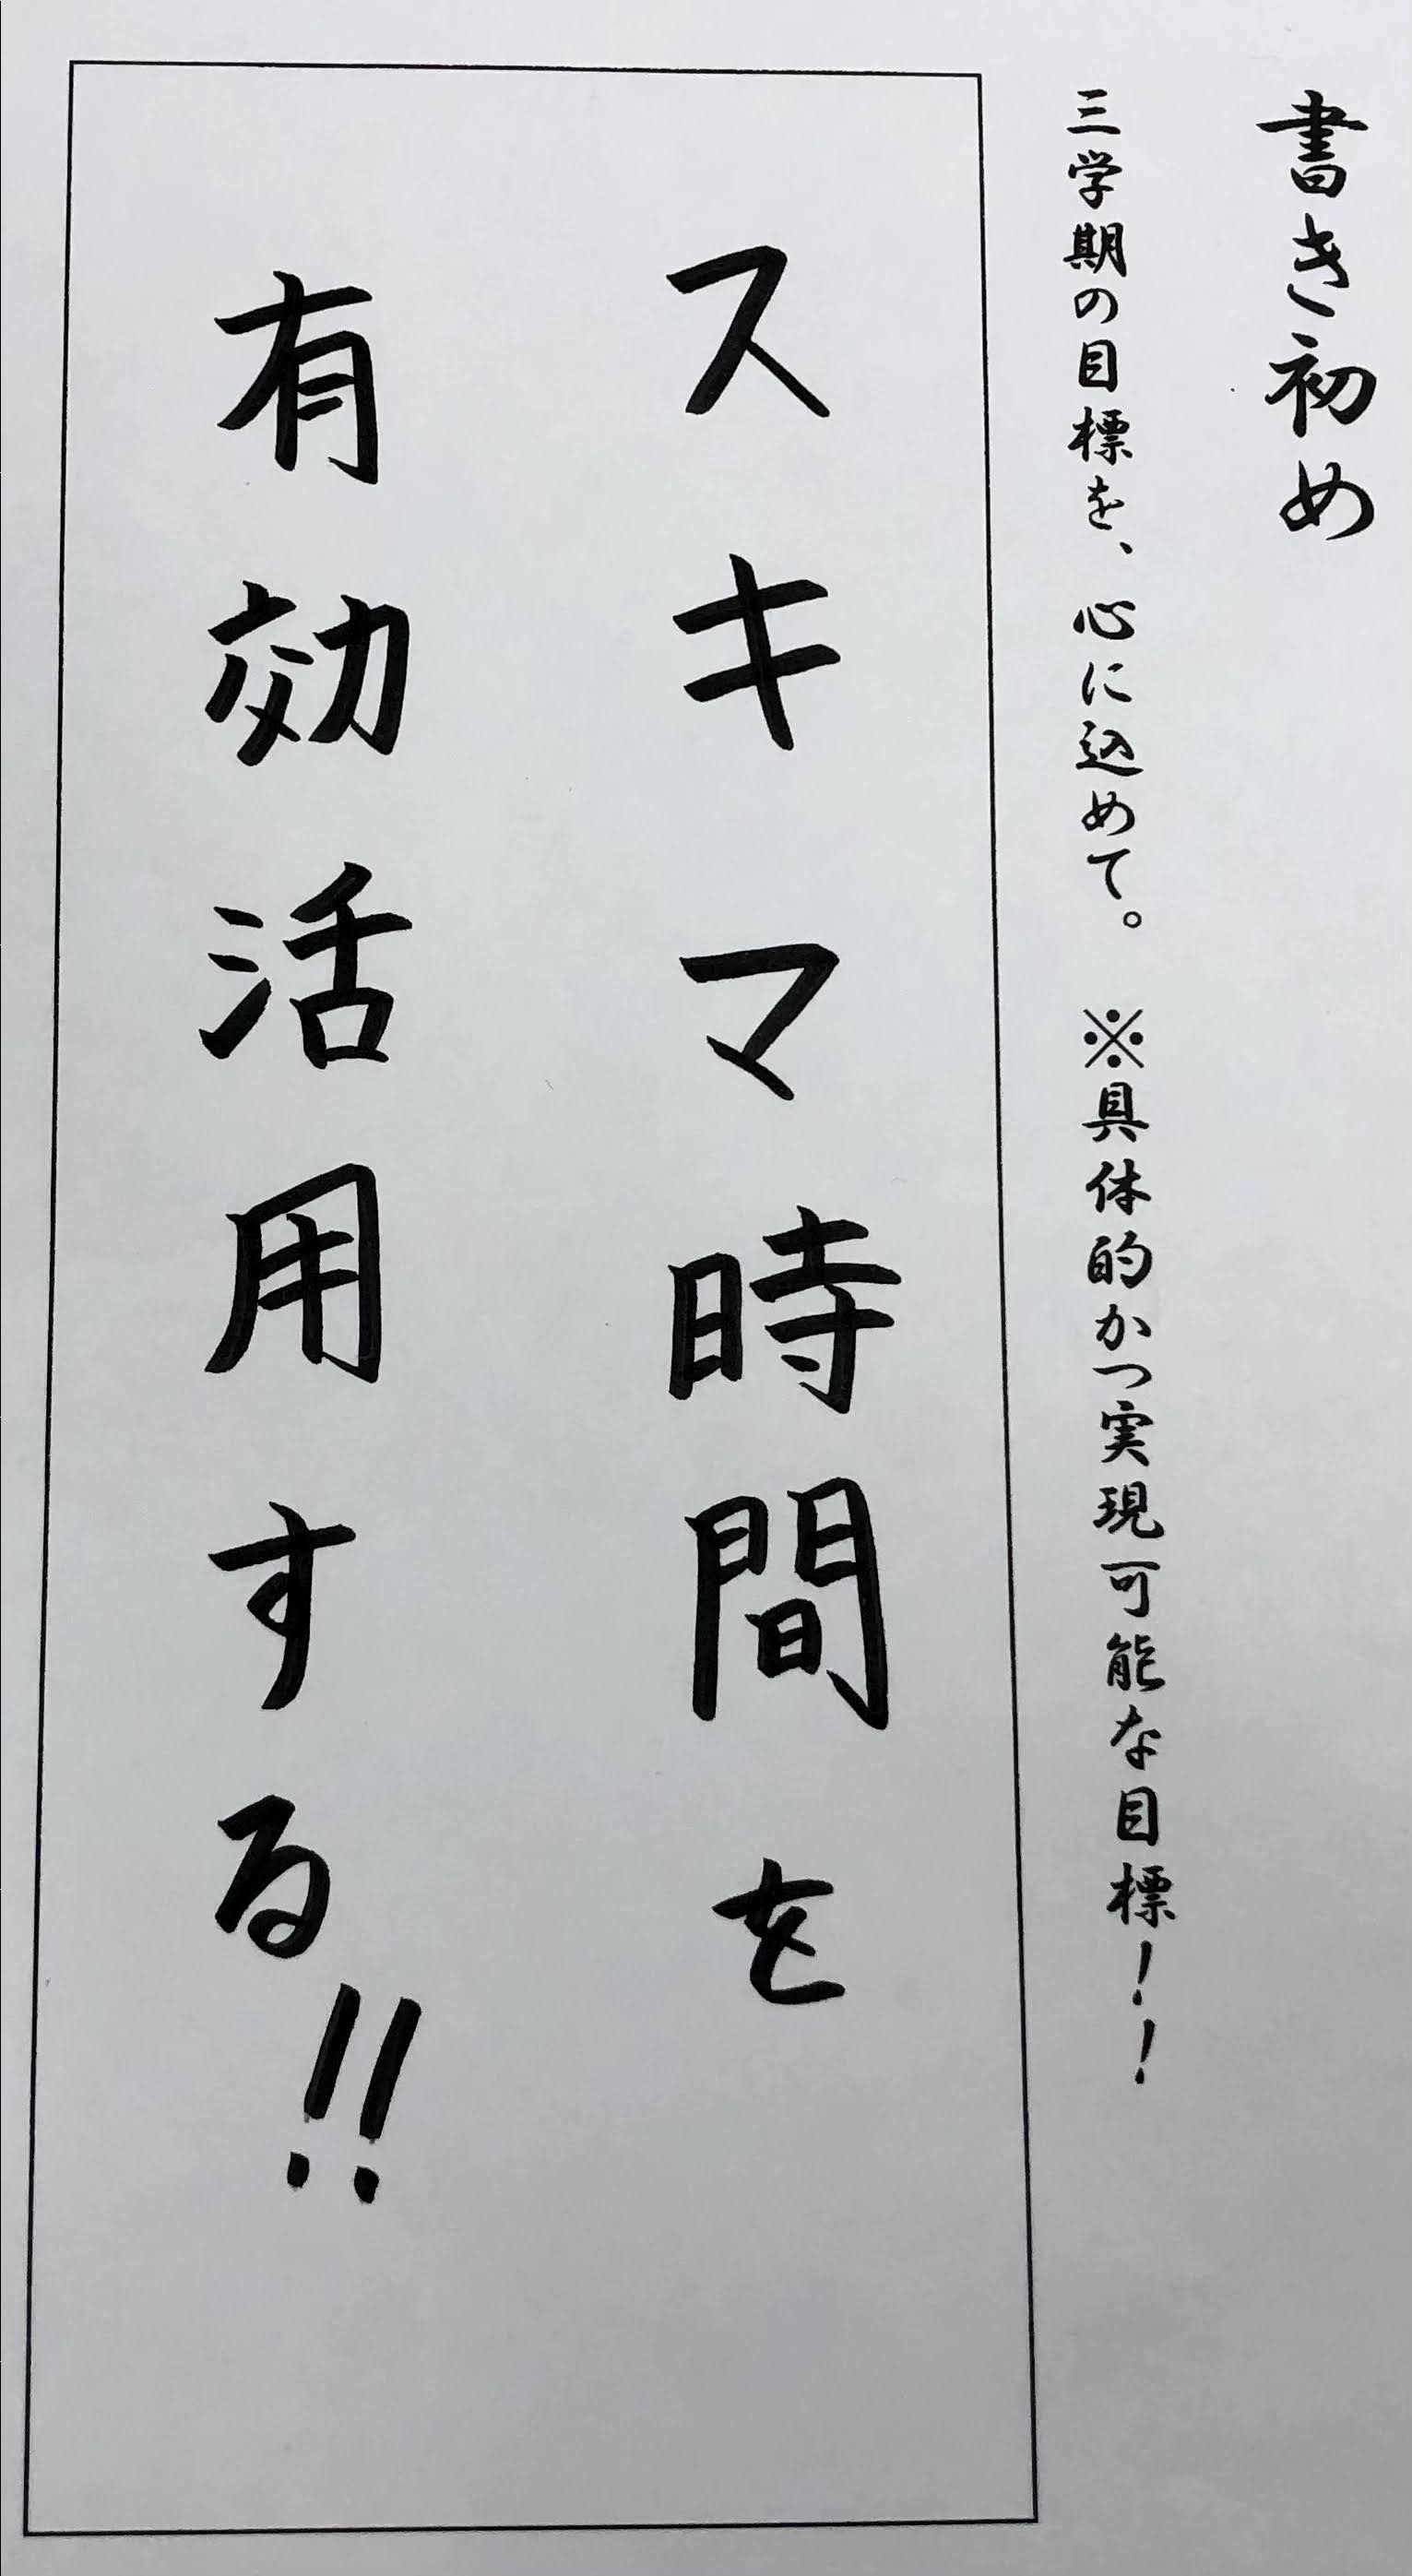 書き初め
三学期の目標を、心に込めて。　※具体的かつ実現可能な目標！！
スキマ時間を
有効活用する!!